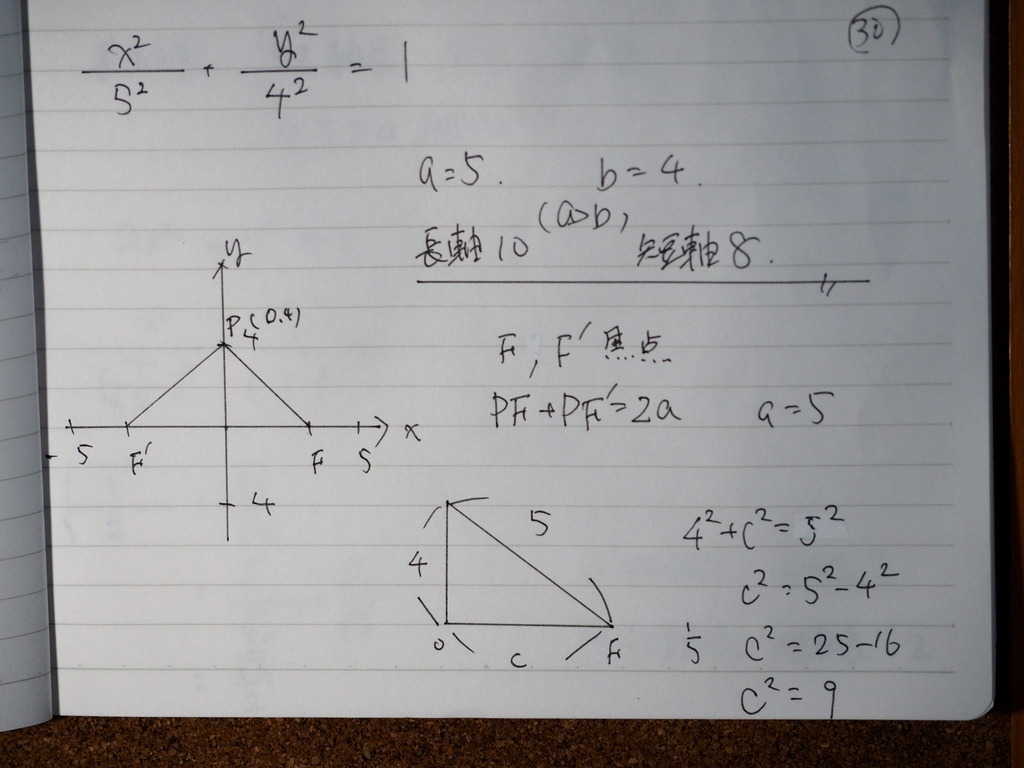 ㉚
x²/5² + y²/4² = 1
a=5. b=4.
(a>b)
長軸10 短軸8.
y
P(0.4)
4
F, F′ 焦点
PF+PF′=2a a=5
5 F′ F 5 x
4
5
4
0 c F
4²+c²=5²
c²=5²-4²
1/5 c²=25-16
c²=9